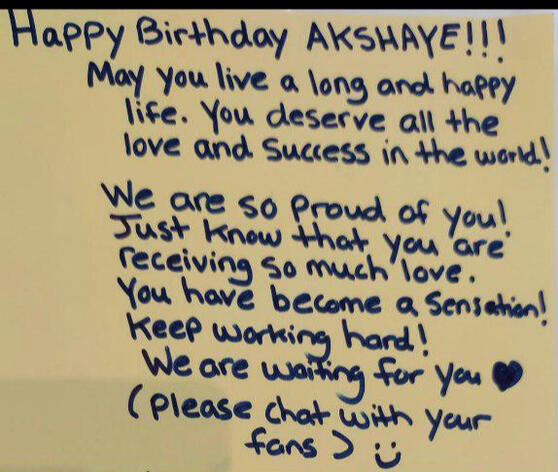 Happy Birthday AKSHAYE!!!
May you live a long and happy
life. You deserve all the
love and success in the world!
We are so proud of you!
Just know that you are
receiving so much love.
You have become a sensation!
Keep working hard!
We are waiting for you ♥
(please chat with your
fans) :)